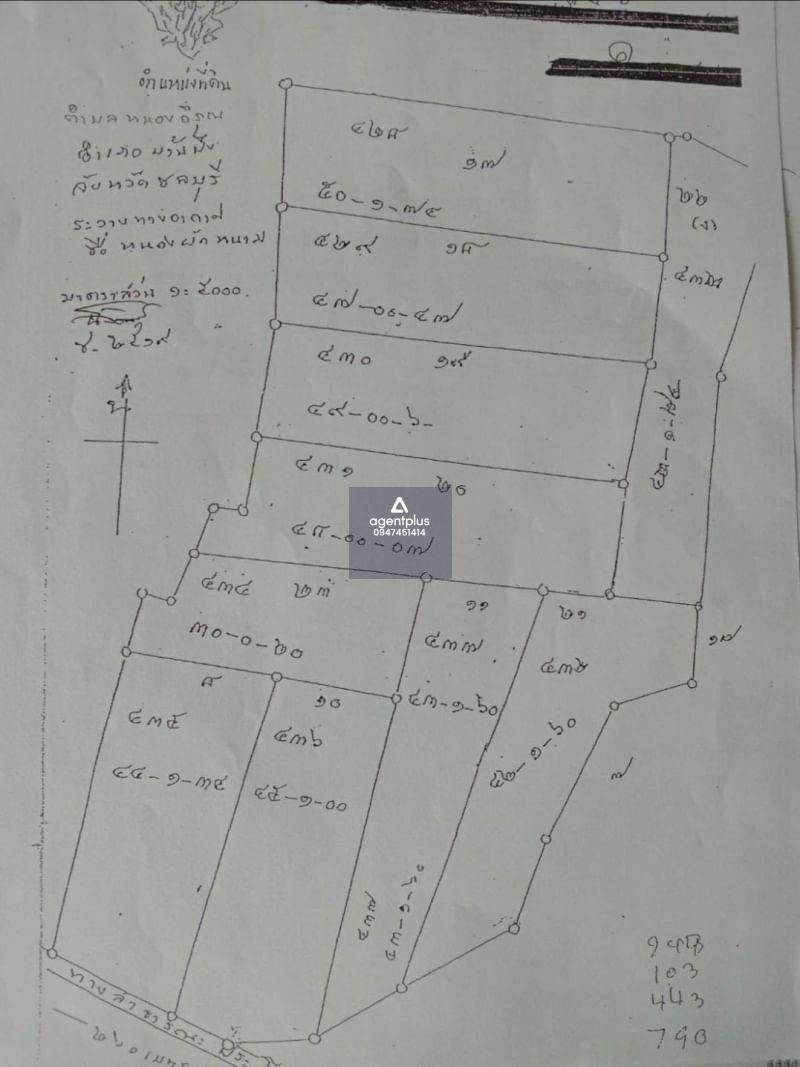 ตำแหน่งที่ดิน
ตำบล หนองอิรุณ
อำเภอ บ้านบึง
จังหวัด ชลบุรี
ระวางทางอากาศ
ชื่อ หนองผักหนาม
มาตราส่วน ๑:๕๐๐๐
น
๔๒๘
๑๗
๕๐-๑-๗๔
๒๒
(ง)
๔๒๙
๑๘
๔๗-๐๐-๔๗
๔๓๐
๑๙
๔๙-๐๐-๖-
๔๓๑
๒๐
๔๘-๐๐-๐๗
agentplus
0947451414
๔๓๔
๒๓
๓๐-๐-๒๐
๑๑
๔๓๗
๔๓-๑-๖๐
๒๑
๑๘
๘
๔๓๕
๔๔-๑-๓๔
๑๐
๔๓๖
๔๕-๑-๐๐
๕๒-๑-๖๐
๗
๔๓๗
๔๓-๑-๖๐
ทางสาธารณะ
103
443
790